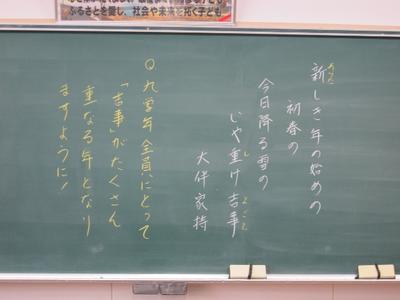 ふるさとを愛し、社会や未来を拓く子ども
あらた
新しき年の始めの
初春の
今日降る雪の
し よごと
いや重け吉事
大伴家持
◎九学年全員にとって
「吉事」がたくさん
重なる年となり
ますように!